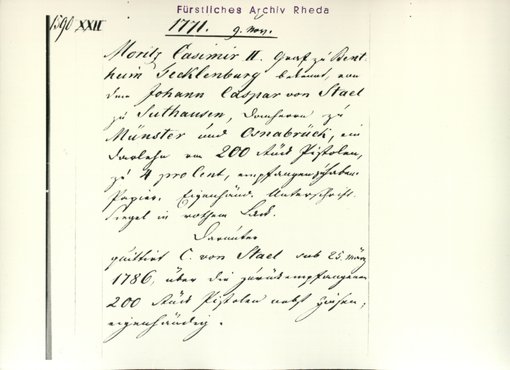 Fürstliches Archiv Rheda
1771. 9. Nov.
Moritz Casimir II. Graf zu Bent-
heim Tecklenburg bekennt, von
dem Johann Caspar von Stael
zu Suthausen, Domherrn zu
Münster und Osnabrück, ein
Darlehn von 200 Stück Pistolen,
zu 4 pro Cent, empfangen zu haben.
Papier. Eigenhänd. Unterschrift.
Siegel in rothem Lack.
Darunter
quittirt C. von Stael sub 25. März
1786, über die zurückempfangenen
200 Stück Pistolen nebst Zinsen,
eigenhändig.